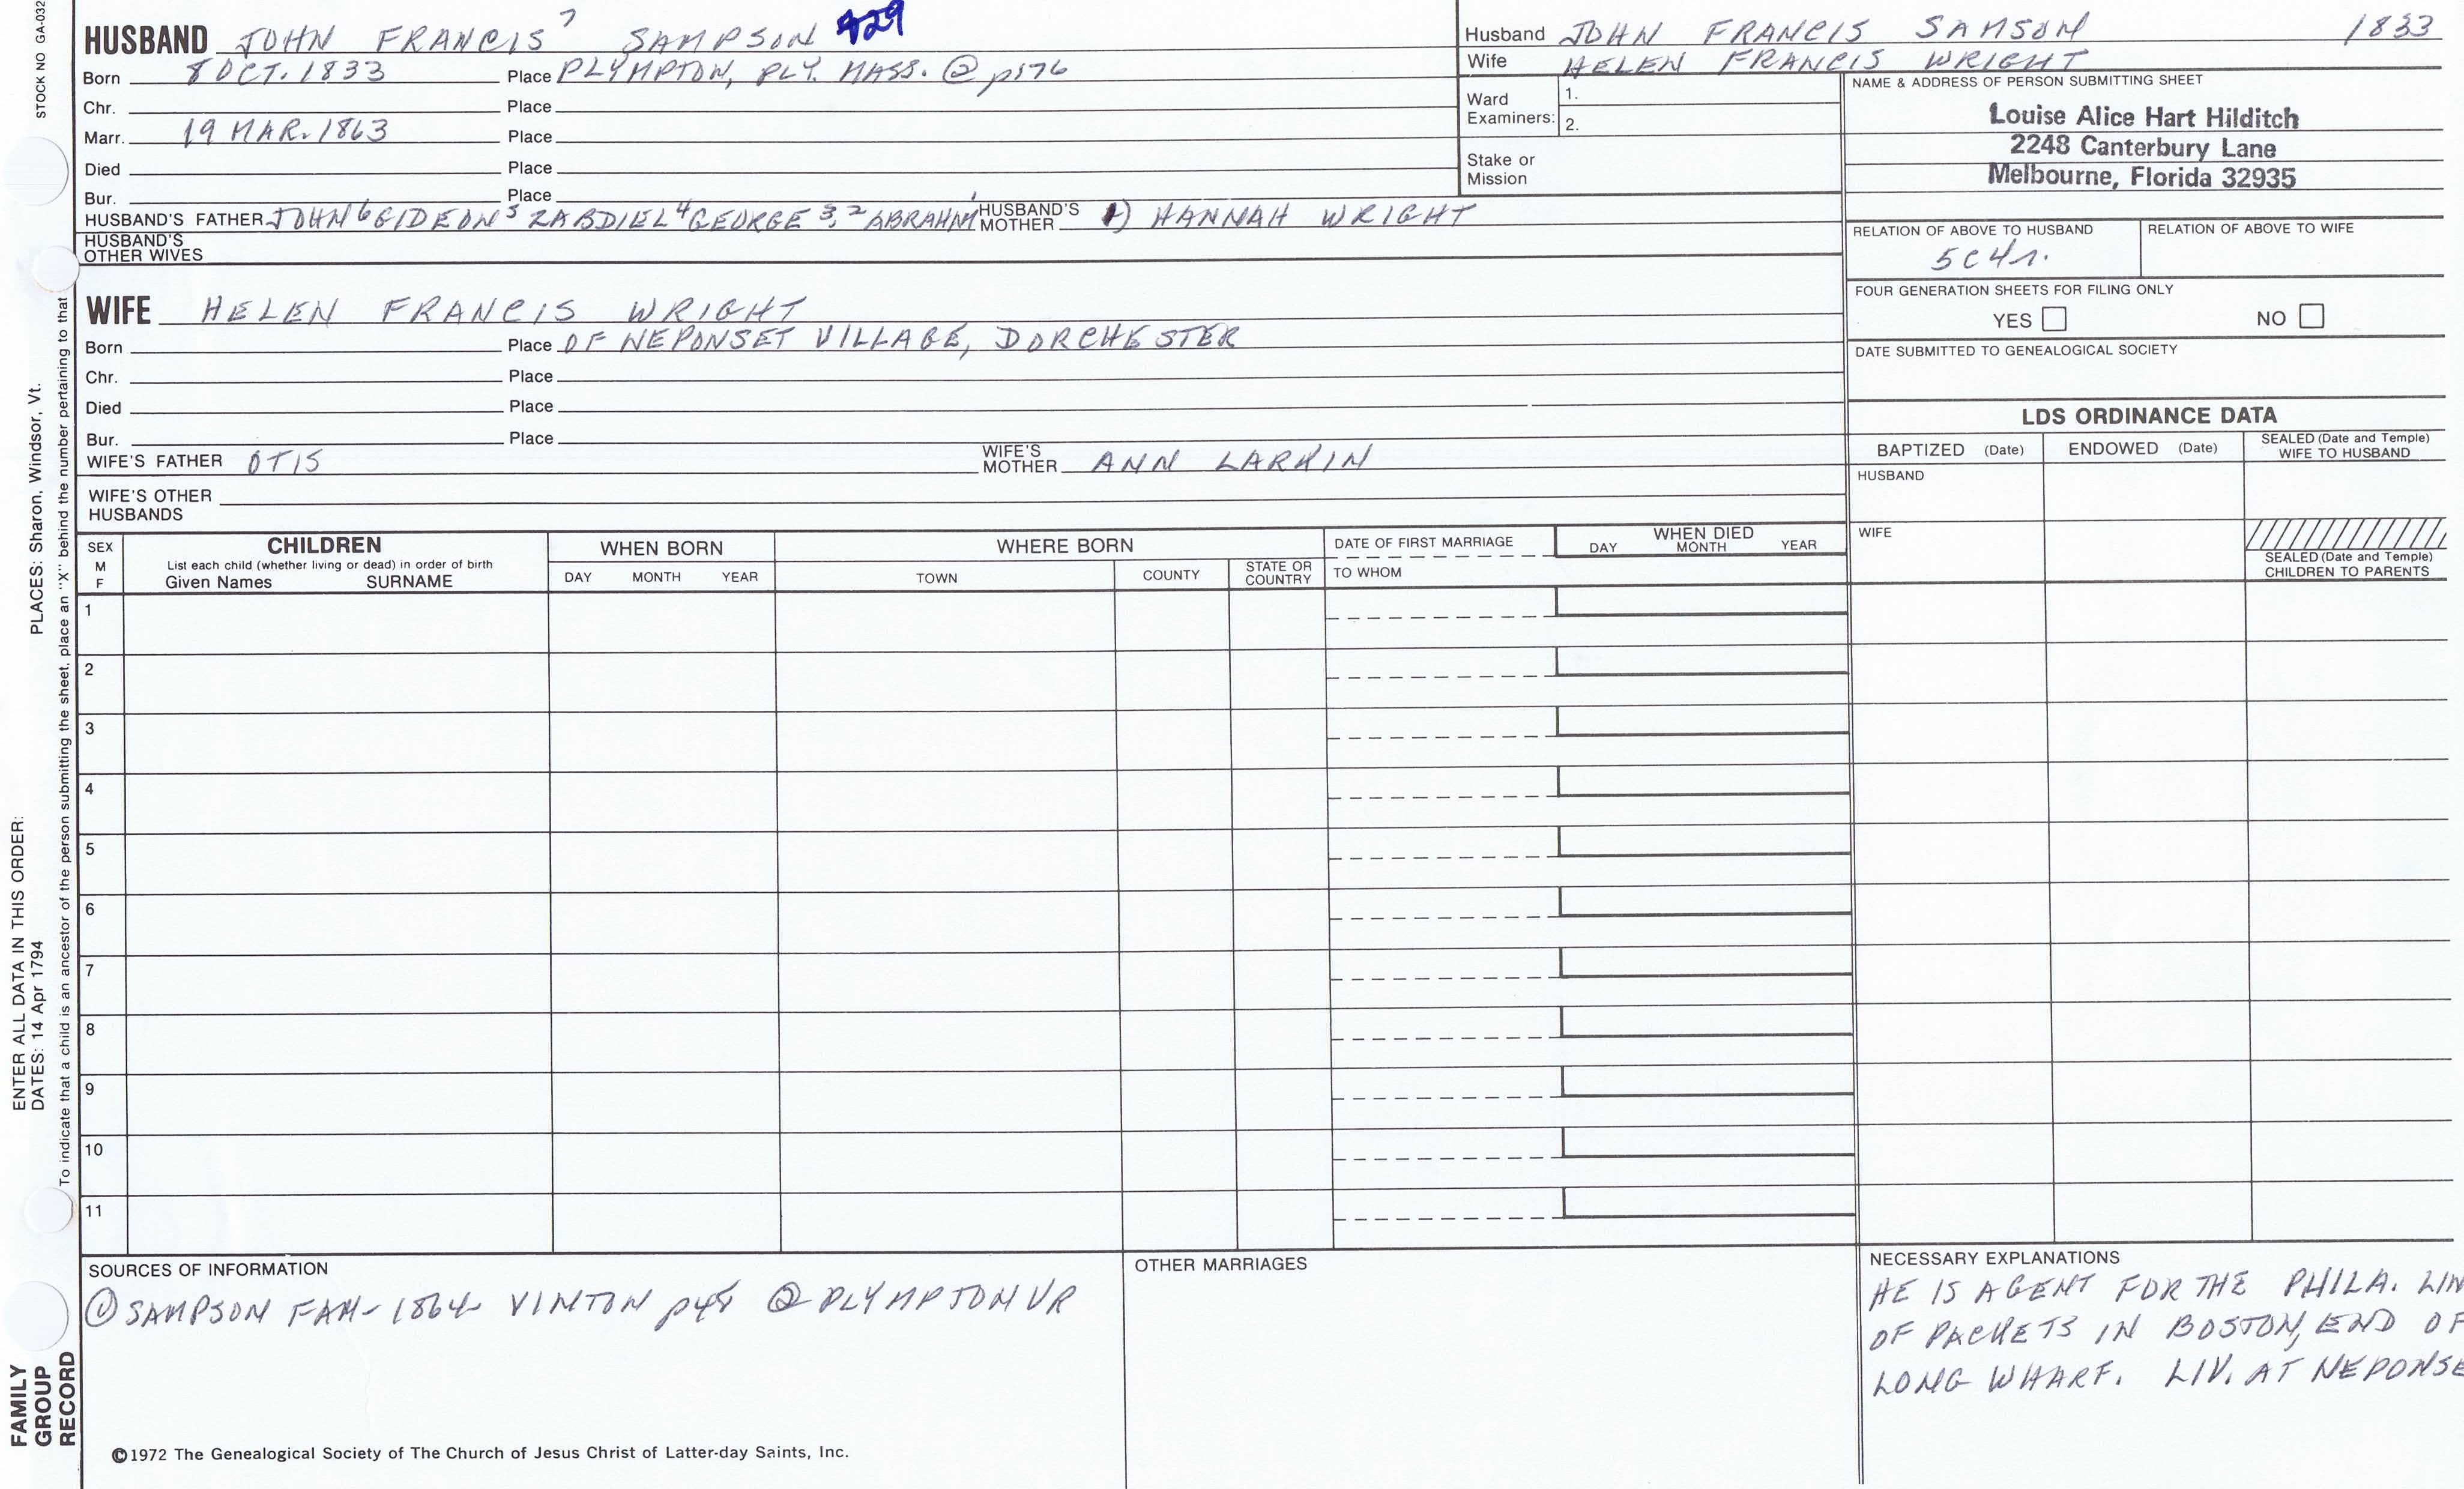 STOCK NO GA-032
PLACES: Sharon, Windsor, Vt.
ENTER ALL DATA IN THIS ORDER:
DATES: 14 Apr 1794
To indicate that a child is an ancestor of the person submitting the sheet, place an "X" behind the number pertaining to that
FAMILY
GROUP
RECORD
HUSBAND JOHN FRANCIS 7 SAMPSON 929
Born 8 OCT. 1833 Place PLYMPTON, PLY. MASS. @ p176
Chr. Place
Marr. 19 MAR. 1863 Place
Died Place
Bur. Place
HUSBAND'S FATHER JOHN 6 GIDEON 5 ZABDIEL 4 GEORGE 3, 2 ABRAHAM 1 HUSBAND'S MOTHER 1) HANNAH WRIGHT
HUSBAND'S
OTHER WIVES
Husband JOHN FRANCIS SAMSON 1833
Wife HELEN FRANCIS WRIGHT
Ward
Examiners: 1.
2.
Stake or
Mission
NAME & ADDRESS OF PERSON SUBMITTING SHEET
Louise Alice Hart Hilditch
2248 Canterbury Lane
Melbourne, Florida 32935
RELATION OF ABOVE TO HUSBAND RELATION OF ABOVE TO WIFE
5C4r.
FOUR GENERATION SHEETS FOR FILING ONLY
YES NO
DATE SUBMITTED TO GENEALOGICAL SOCIETY
WIFE HELEN FRANCIS WRIGHT
Born Place OF NEPONSET VILLAGE, DORCHESTER
Chr. Place
Died Place
Bur. Place
WIFE'S FATHER OTIS WIFE'S MOTHER ANN LARKIN
WIFE'S OTHER
HUSBANDS
LDS ORDINANCE DATA
BAPTIZED (Date) ENDOWED (Date) SEALED (Date and Temple) WIFE TO HUSBAND
HUSBAND
WIFE
SEALED (Date and Temple)
CHILDREN TO PARENTS
SEX
M
F
CHILDREN
List each child (whether living or dead) in order of birth
Given Names SURNAME
WHEN BORN
DAY MONTH YEAR
WHERE BORN
TOWN COUNTY STATE OR COUNTRY
DATE OF FIRST MARRIAGE
TO WHOM
WHEN DIED
DAY MONTH YEAR
1
2
3
4
5
6
7
8
9
10
11
SOURCES OF INFORMATION
① SAMPSON FAM- 1864 VINTON p48 ② PLYMPTON VR
OTHER MARRIAGES
NECESSARY EXPLANATIONS
HE IS AGENT FOR THE PHILA. LIN
OF PACKETS IN BOSTON, END OF
LONG WHARF. LIV. AT NEPONSE
©1972 The Genealogical Society of The Church of Jesus Christ of Latter-day Saints, Inc.